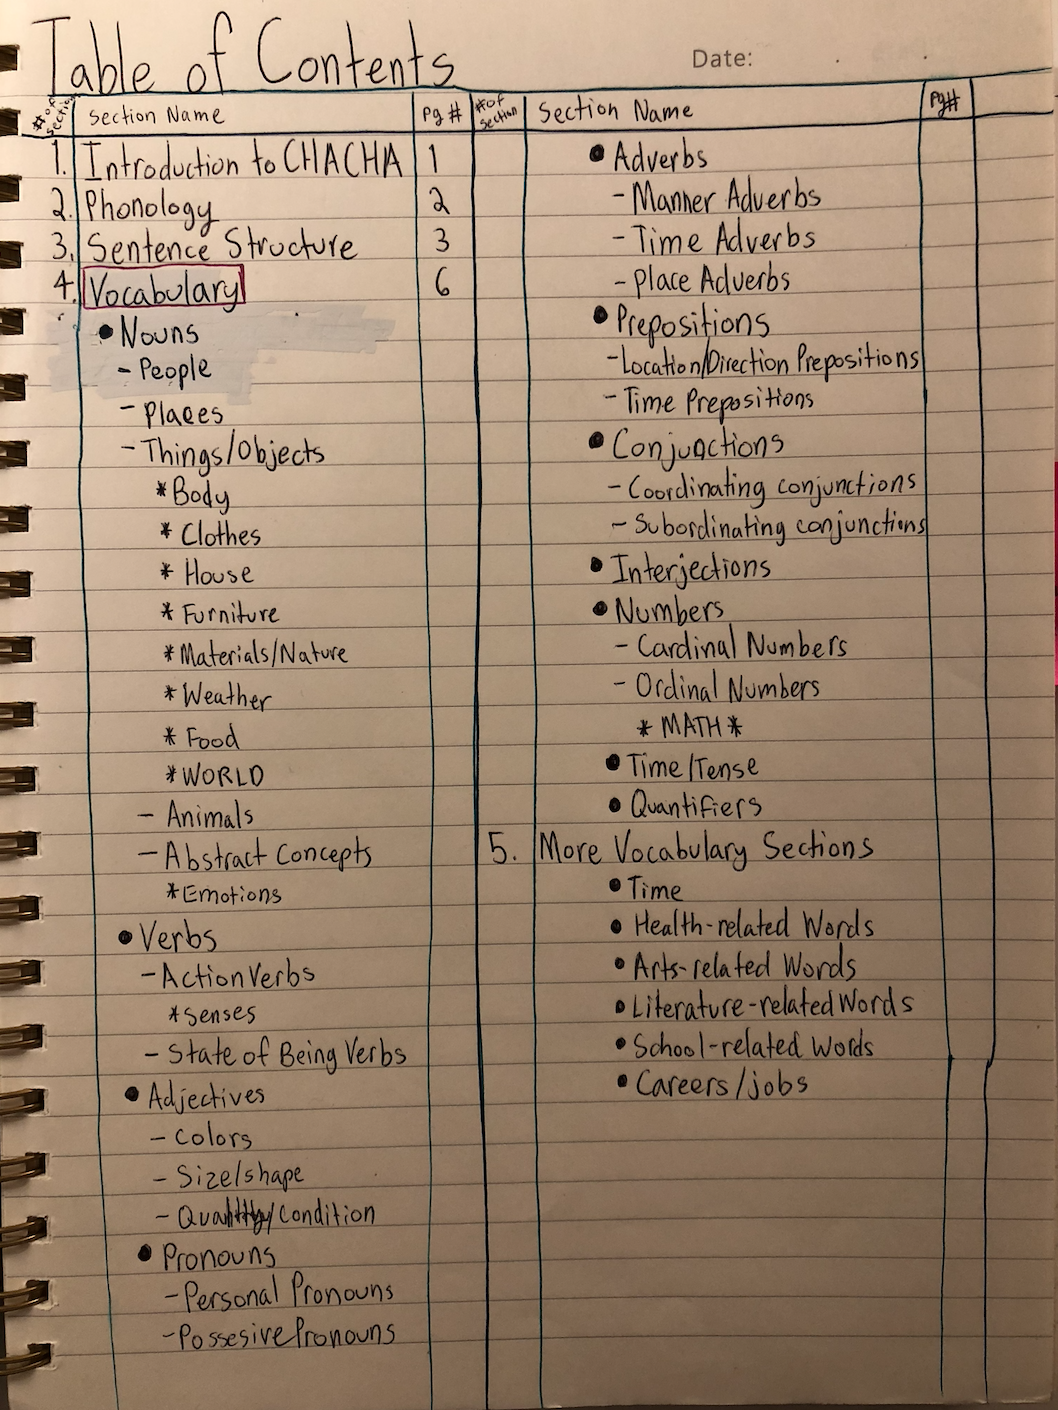 Table of Contents
Date:
# of section Section Name Pg #
1. Introduction to CHACHA 1
2. Phonology 2
3. Sentence Structure 3
4. Vocabulary 6
• Nouns
- People
- Places
- Things/Objects
* Body
* Clothes
* House
* Furniture
* Materials/Nature
* Weather
* Food
* WORLD
- Animals
- Abstract Concepts
* Emotions
• Verbs
- Action Verbs
* Senses
- State of Being Verbs
• Adjectives
- Colors
- Size/shape
- Quality/Condition
• Pronouns
- Personal Pronouns
- Possesive Pronouns
# of section Section Name Pg#
• Adverbs
- Manner Adverbs
- Time Adverbs
- Place Adverbs
• Prepositions
- Location/Direction Prepositions
- Time Prepositions
• Conjunctions
- Coordinating conjunctions
- Subordinating conjunctions
• Interjections
• Numbers
- Cardinal Numbers
- Ordinal Numbers
* MATH *
• Time/Tense
• Quantifiers
5. More Vocabulary Sections
• Time
• Health-related Words
• Arts-related Words
• Literature-related Words
• School-related Words
• Careers/jobs